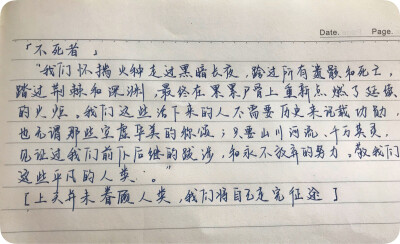 Date.        Page.
「不死者」
“我们怀揣火种走过黑暗长夜，跨过所有遗骸和死亡，
踏过荆棘和深渊，最终在累累尸骨上重新点燃了延续
的火炬。我们这些活下来的人不需要历史来记载功勋，
也无谓那些空虚华美的称颂；只要山川河流、千万英灵，
见证过我们前仆后继的跋涉，和永不放弃的努力。敬我们
这些平凡的人类。”
[上天并未眷顾人类，我们将自己走完征途]